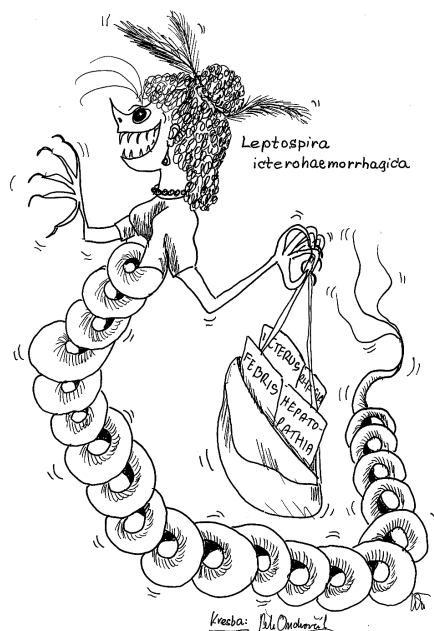 Leptospira
icterohaemorrhagica
ICTERUS
FEBRIS
HEPATO-
PATHIA
Kresba: